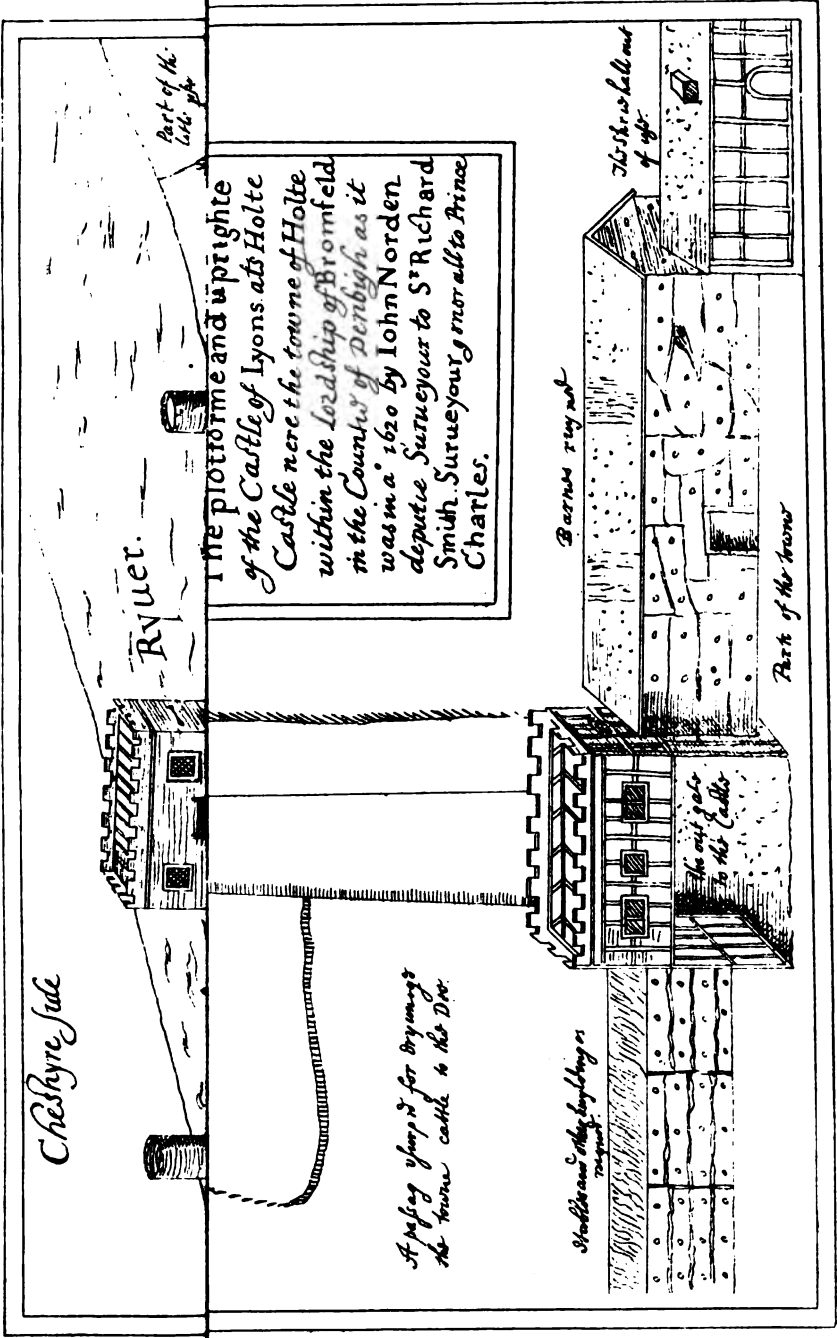 Cheshyre side
Ryuer.
Part of the
litle
The plotforme and uprighte
of the Castle of Lyons ats Holte
Castle nere the towne of Holte
within the Lordship of Bromfeld
in the Countie of Denbigh as it
was in a° 1620 by Iohn Norden
deputie Surueyour to Sr Richard
Smith Surueyour generall to Prince
Charles.
A passag vsurped for dryuinge
the towne cattle to the Dee.
Stables and other buyldinges
ruyned
The out gate
to the Castle
Barnes ruyned
Part of the towne
The Shirehall out
of use.